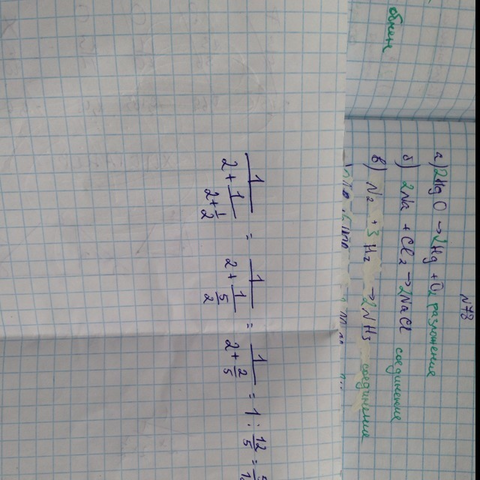 обмен
N78
а) 2HgO → 2Hg + O2 разложение
б) 2Na + Cl2 → 2NaCl соединение
в) N2 + 3H2 → 2NH3 соединение
1/(2+1/(2+1/2)) = 1/(2+1/(5/2)) = 1/(2+2/5) = 1 : 12/5 = 5/1